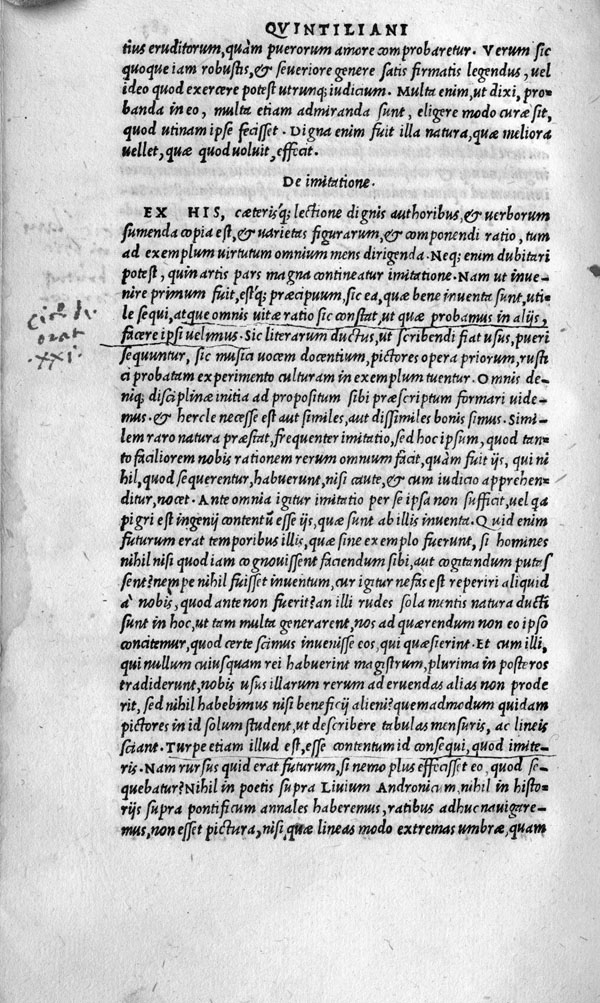 QVINTILIANI
tius eruditorum, quàm puerorum amore comprobaretur. Verum sic
quoque iam robustis, & seueriore genere satis firmatis legendus, uel
ideo quod exercere potest utrunq; iudicium. Multa enim, ut dixi, pro-
banda in eo, multa etiam admiranda sunt, eligere modo curæ sit,
quod utinam ipse fecisset. Digna enim fuit illa natura, quæ meliora
uellet, quæ quod uoluit, effecit.
De imitatione.
EX HIS, cæterisq; lectione dignis authoribus, & uerborum
sumenda copia est, & uarietas figurarum, & componendi ratio, tum
ad exemplum uirtutum omnium mens dirigenda. Neq; enim dubitari
potest, quin artis pars magna contineatur imitatione. Nam ut inue-
nire primum fuit, estq; præcipuum, sic ea, quæ bene inuenta sunt, uti-
le sequi, atque omnis uitæ ratio sic constat, ut quæ probamus in alijs,
facere ipsi uelimus. Sic literarum ductus, ut scribendi fiat usus, pueri
sequuntur, sic musici uocem docentium, pictores opera priorum, rusti
ci probatam experimento culturam in exemplum tuentur. Omnis de-
niq; disciplinæ initia ad propositum sibi præscriptum formari uide-
mus. & hercle necesse est aut similes, aut dissimiles bonis simus. Simi-
lem raro natura præstat, frequenter imitatio, sed hoc ipsum, quod tan-
to faciliorem nobis rationem rerum omnium facit, quàm fuit ijs, qui ni
hil, quod sequerentur, habuerunt, nisi caute, & cum iudicio apprehen-
ditur, nocet. Ante omnia igitur imitatio per se ipsa non sufficit, uel qa
pigri est ingenij contentũ esse ijs, quæ sunt ab illis inuenta. Quid enim
futurum erat temporibus illis, quæ sine exemplo fuerunt, si homines
nihil nisi quod iam cognouissent faciendum sibi, aut cogitandum putas
sent? nempe nihil fuisset inuentum, cur igitur nefas est reperiri aliquid
à nobis, quod ante non fuerit? an illi rudes sola mentis natura ducti
sunt in hoc, ut tam multa generarent, nos ad quærendum non eo ipso
concitemur, quod certe scimus inuenisse eos, qui quæsierint. Et cum illi,
qui nullum cuiusquam rei habuerint magistrum, plurima in posteros
tradiderunt, nobis usus illarum rerum ad eruendas alias non prode
rit, sed nihil habebimus nisi beneficij alieni? quemadmodum quidam
pictores in id solum student, ut describere tabulas mensuris, ac lineis
sciant. Turpe etiam illud est, esse contentum id consequi, quod imite-
ris. Nam rursus quid erat futurum, si nemo plus effecisset eo, quod se-
quebatur? Nihil in poetis supra Liuium Andronicum, nihil in histo-
rijs supra pontificum annales haberemus, ratibus adhuc nauigare-
mus, non esset pictura, nisi quæ lineas modo extremas umbræ, quam
orat
XXI.